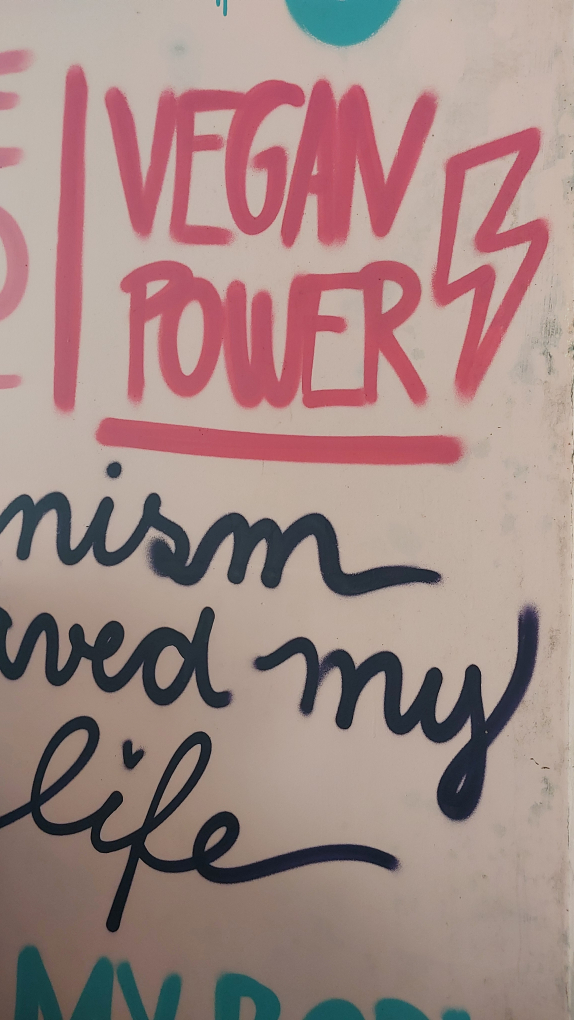 VEGAN
POWER
nism
aved my
life
MY BODY